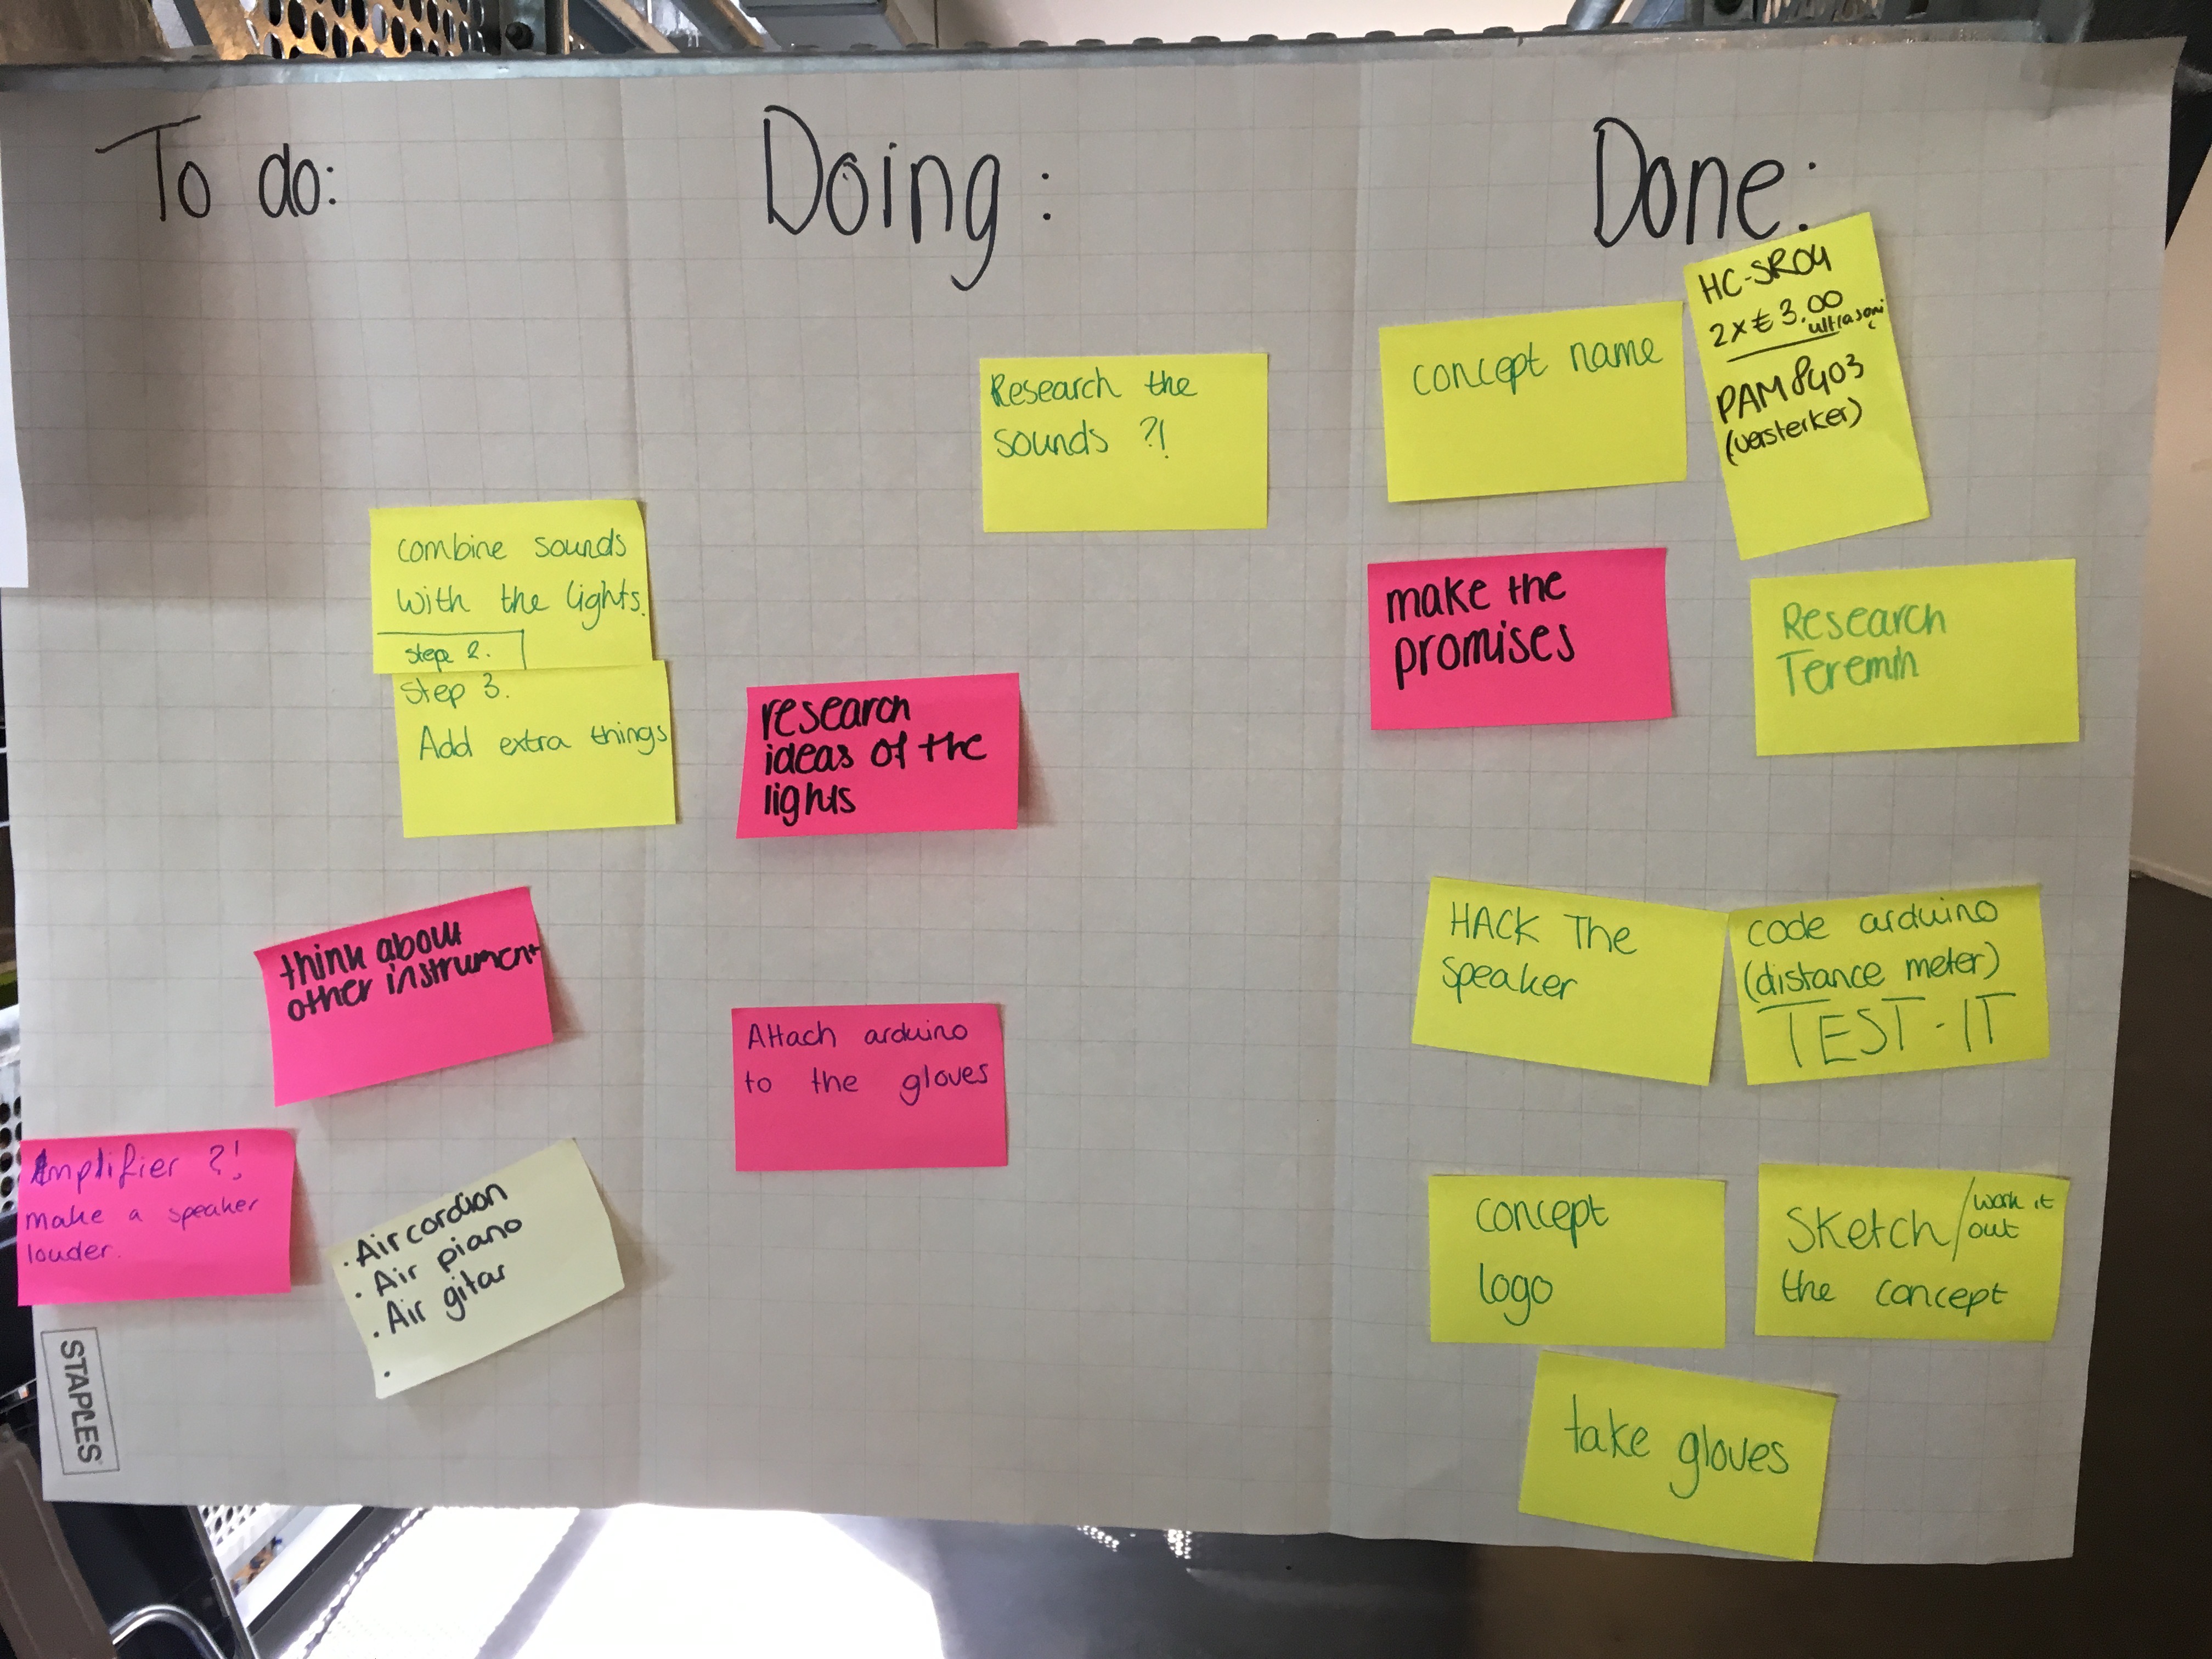 To do:
combine sounds
with the lights.
step 2.
Step 3.
Add extra things
think about
other instrument
Amplifier ?!
make a speaker
louder.
. Aircordion
. Air piano
. Air gitar
.
STAPLES
Doing:
Research the
sounds ?!
research
ideas of the
lights
Attach arduino
to the gloves
Done:
concept name
HC-SR04
2x€3.00
ultrasonic
PAM8403
(versterker)
make the
promises
Research
Teremin
HACK The
speaker
code arduino
(distance meter)
TEST-IT
concept
logo
Sketch/work it
out
the concept
take gloves